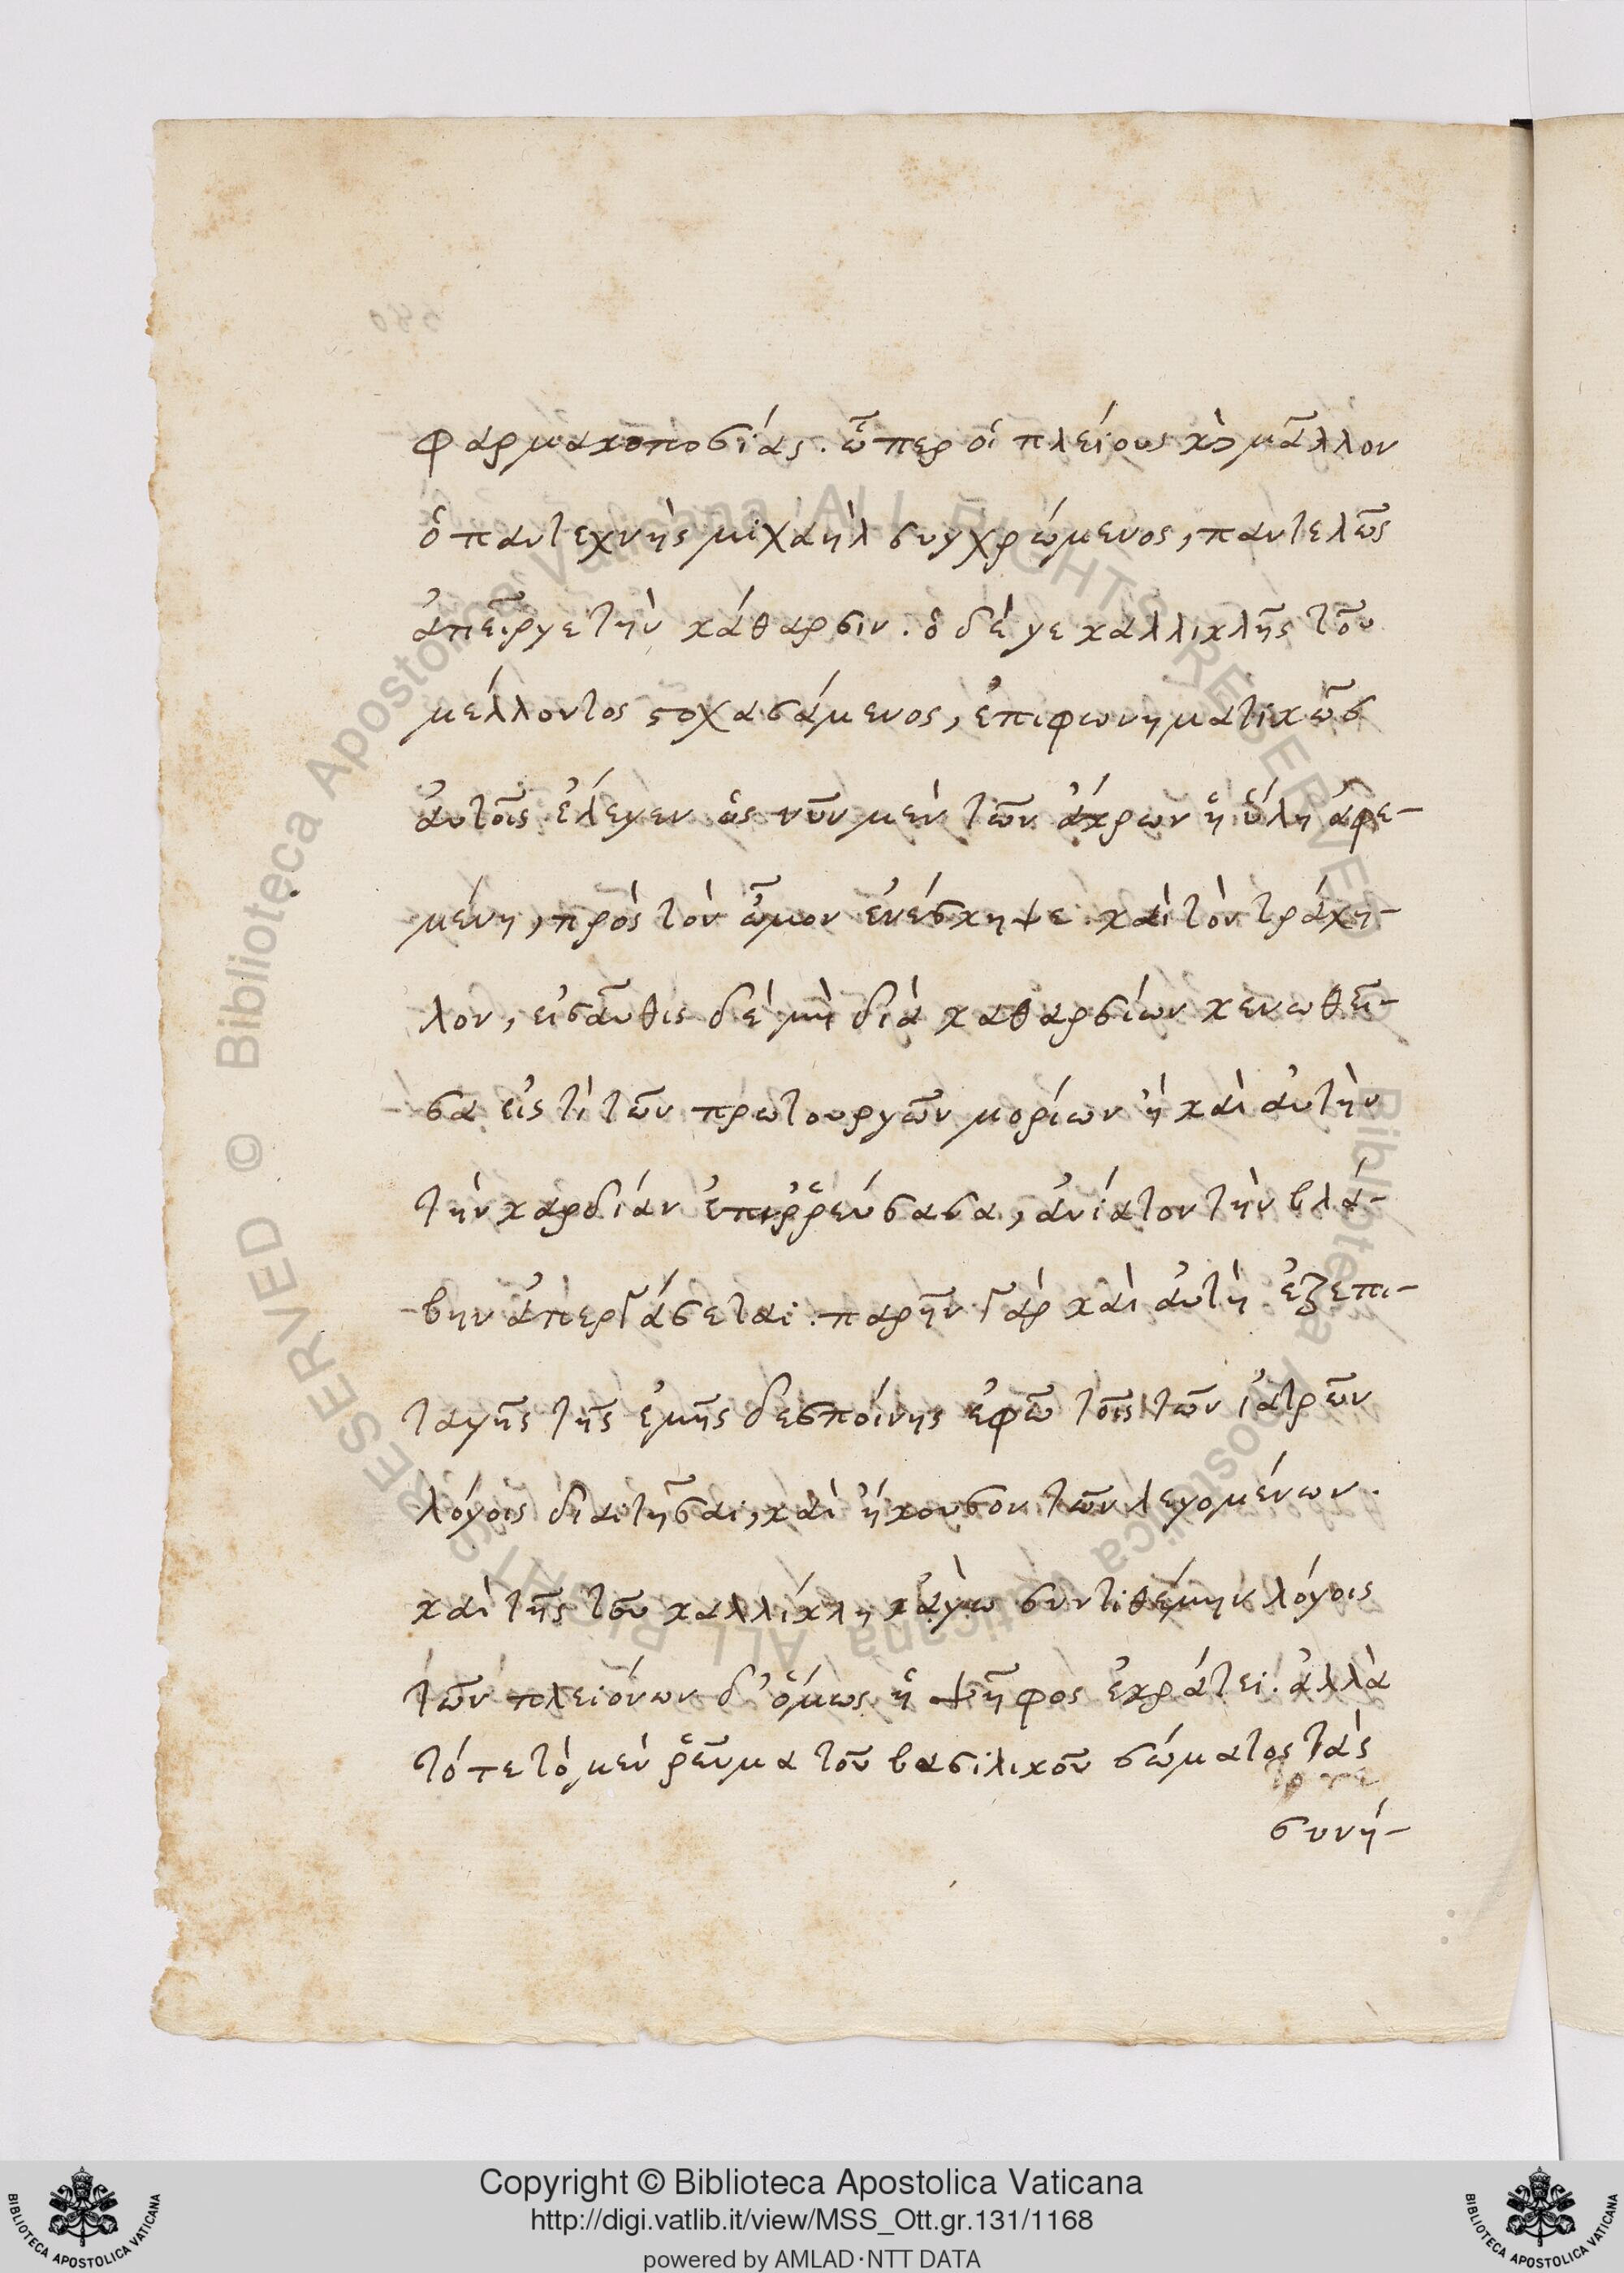 φαρμακοποσίας. ὧπερ οἱ πλείους καὶ μᾶλλον
ὁ παντεχνὴς μιχαὴλ συγχρώμενος, παντελῶς
ἀπεῖργε τὴν κάθαρσιν. ὁ δέ γε καλλικλῆς τοῦ
μέλλοντος στοχασάμενος, ἐπιφωνηματικῶς
ἀυτοῖς ἔλεγεν ὡς νῦν μὲν τῶν ἄκρων ἡ ὕλη ἀφε-
μένη, πρὸς τὸν ὦμον ἐνέσκηψε. καὶ τὸν τράχη-
λον, εἰσαῦθις δὲ μὴ διὰ καθαρσίων κενωθεῖ-
σα εἰς τὶ τῶν πρωτουργῶν μορίων ἢ καὶ ἀυτὴν
τὴν καρδίαν ἐπιῤῥεύσασα, ἀνίατον τὴν βλά-
βην ἀπεργάσεται. παρῆν γὰρ καὶ ἀυτὴ ἐξεπι-
ταγῆς τῆς ἐμῆς δεσποίνης ἐφῶ τοῖς τῶν ἰατρῶν
λόγοις διαιτῆσαι, καὶ ἤκουσον τῶν λεγομένων.
καὶ τῆς τοῦ καλλίκλη κἀγὼ συντιθέμην λόγοις
τῶν πλειόνων δ' ὅμως ἡ ψῆφος ἐκράτει. ἀλλὰ
τότε τὸ μὲν ῥεῦμα τοῦ βασιλικοῦ σώματος τὰς
συνή-
Copyright © Biblioteca Apostolica Vaticana
http://digi.vatlib.it/view/MSS_Ott.gr.131/1168
powered by AMLAD·NTT DATA
BIBLIOTECA APOSTOLICA VATICANA
BIBLIOTECA APOSTOLICA VATICANA
© Biblioteca Apostolica Vaticana ALL RIGHTS RESERVED
Biblioteca Apostolica Vaticana ALL RIGHTS RESERVED